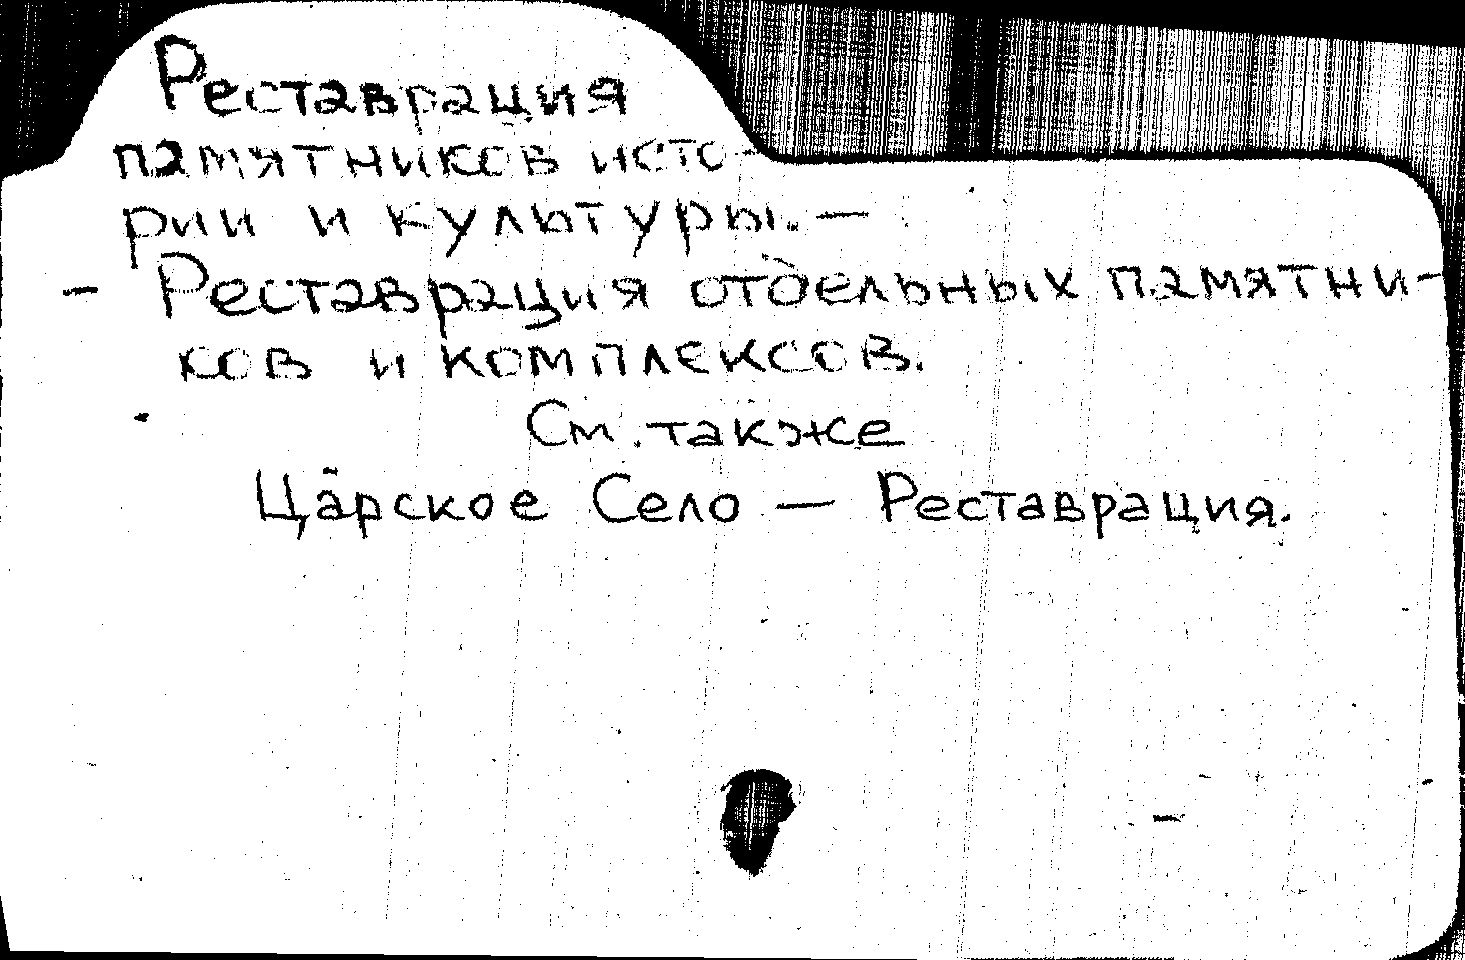 Реставрация
памятников исто-
рии и культуры. —
— Реставрация отдельных памятни-
ков и комплексов.
См. также
Царское Село — Реставрация.